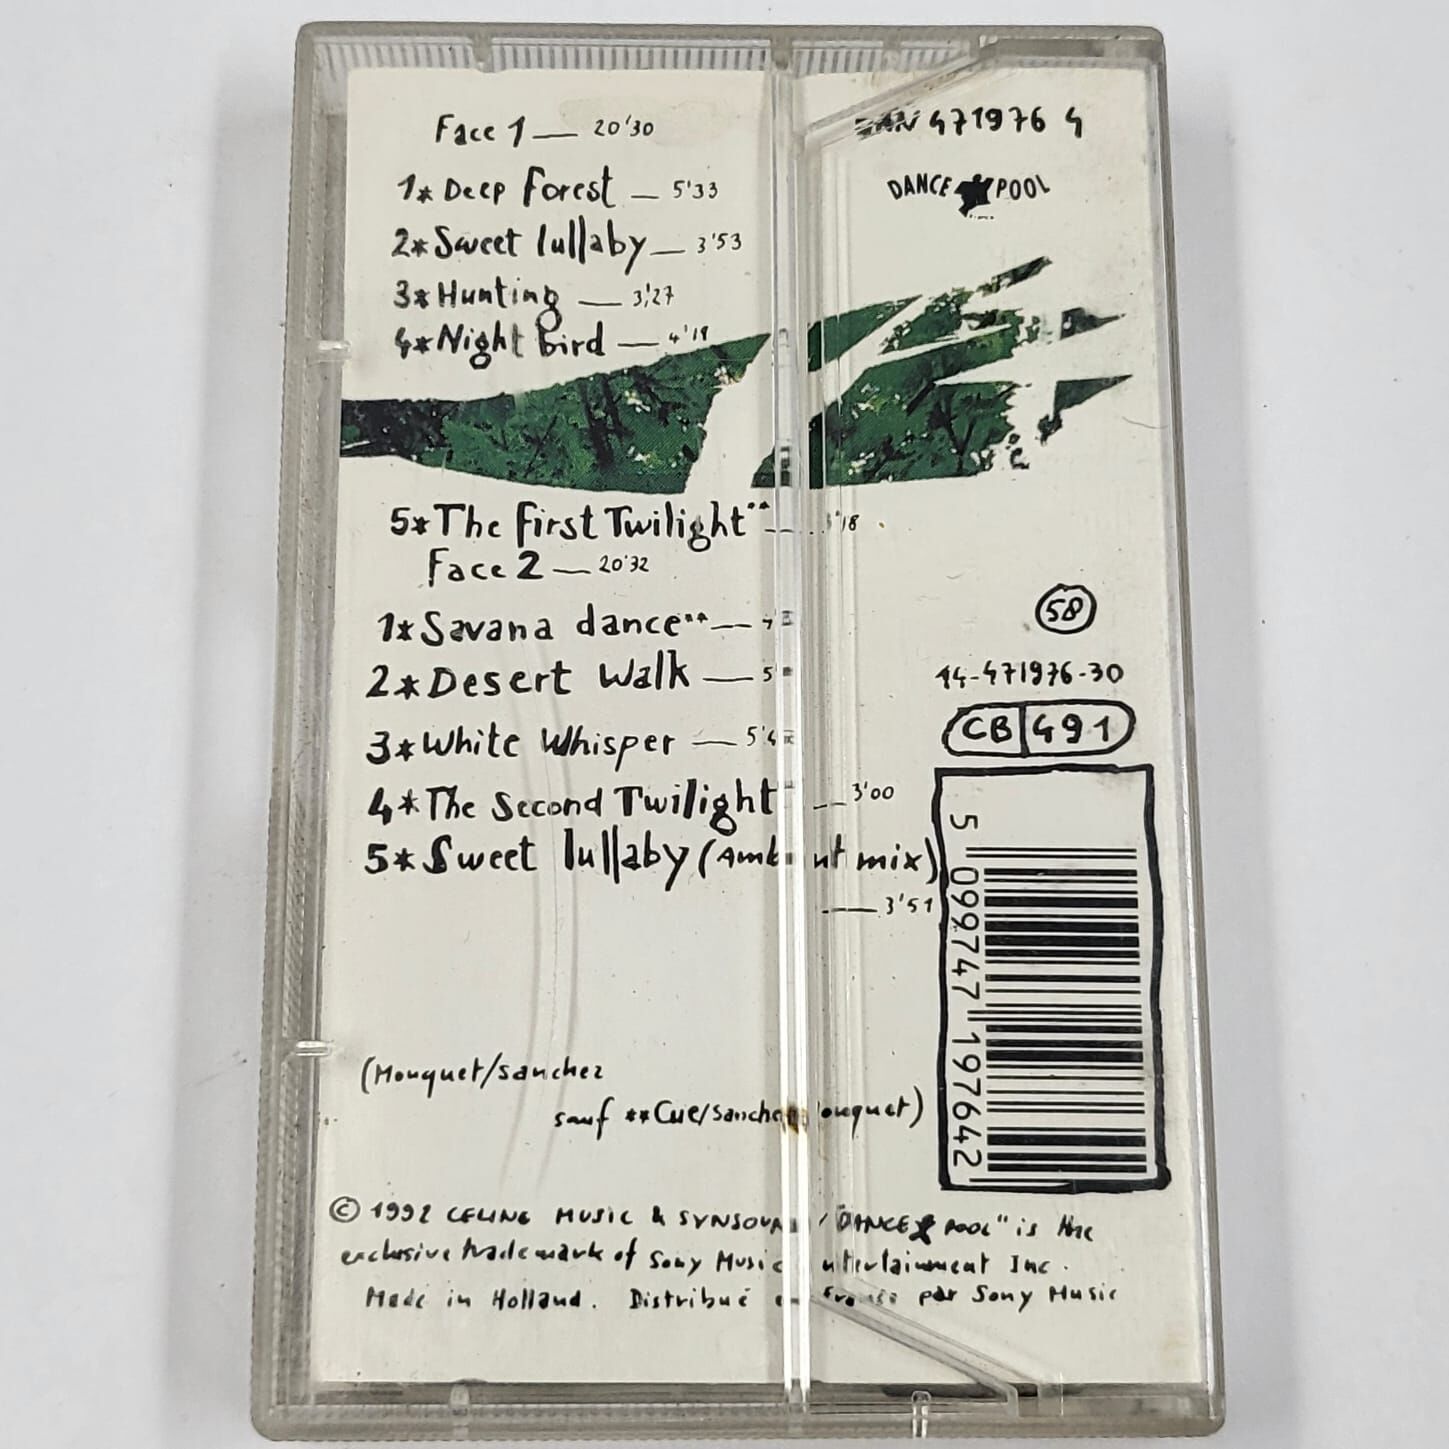 Face 1 — 20'30
1* Deep Forest — 5'33
2* Sweet lullaby — 3'53
3* Hunting — 3'27
4* Night bird — 4'19
5* The First Twilight** — 3'18
Face 2 — 20'32
1* Savana dance** —
2* Desert Walk —
3* White Whisper —
4* The Second Twilight — 3'00
5* Sweet lullaby (Ambient mix)
— 3'51
(Mouquet/Sanchez
sauf **Cue/Sanchez Mouquet)
© 1992 CELINE MUSIC & SYNSOUND / "DANCE POOL" is the
exclusive trademark of Sony Music Entertainment Inc.
Made in Holland. Distribué en France par Sony Music
DAN 471976 4
DANCE POOL
58
14-471976-30
CB 491
5 099747 197642